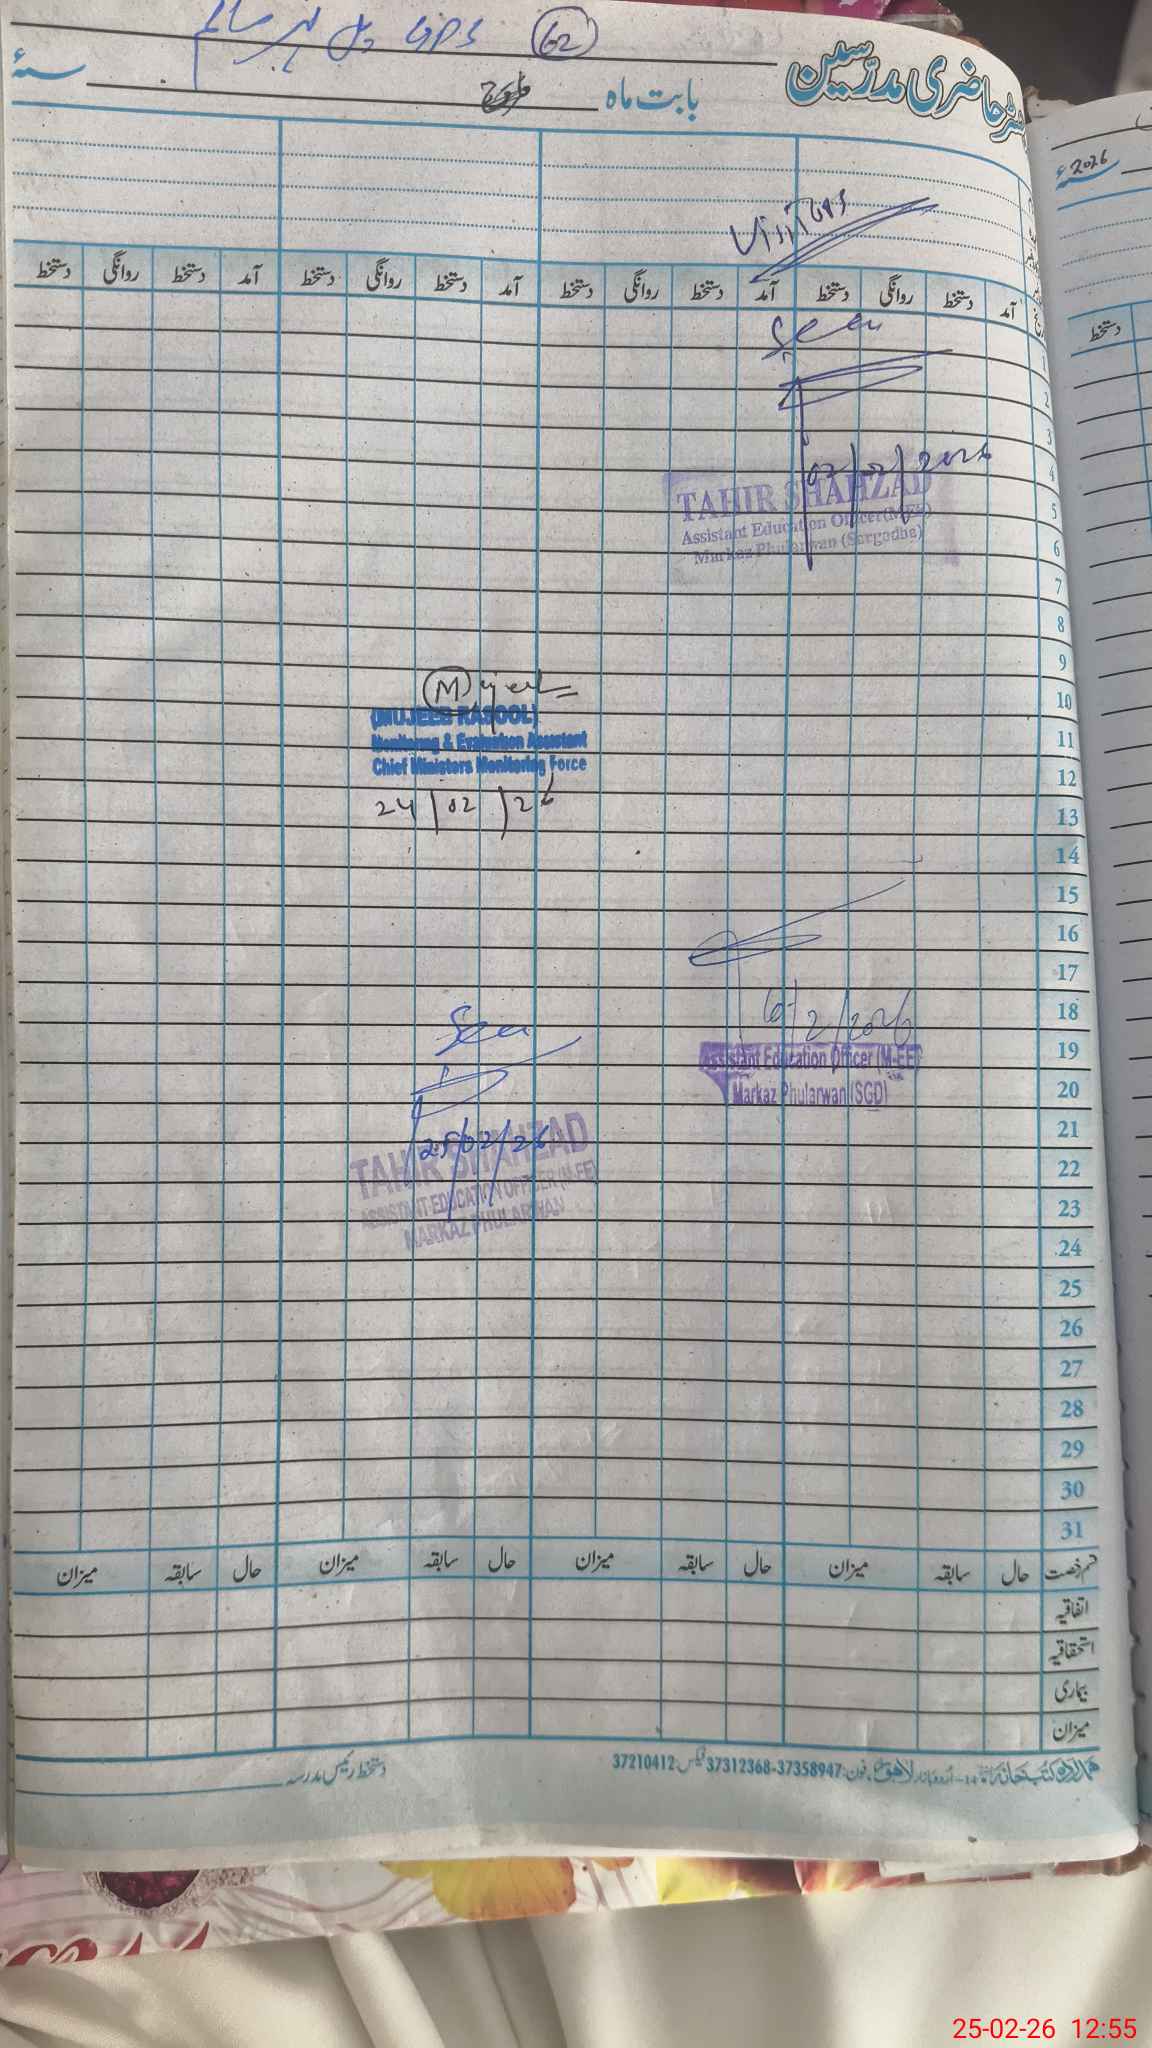 GPS 62
رجسٹر حاضری مدرّسین
بابت ماہ
سنۂ
2026 سنۂ
Visitors
آمد دستخط روانگی دستخط آمد دستخط روانگی دستخط آمد دستخط روانگی دستخط آمد دستخط روانگی دستخط
دستخط
1
Seen
2
3
4
02/02/2026
TAHIR SHAHZAD
5
Assistant Education Officer(M-EE)
6
Markaz Phularwan (Sargodha)
7
8
9
10
Mujeeb
(MUJEEB RASOOL)
11
Monitoring & Evaluation Assistant
Chief Ministers Monitoring Force
12
24/02/26
13
14
15
16
17
18
Seen
2/2026
19
Assistant Education Officer (M-EE)
20
Markaz Phularwan (SGD)
21
25/02/26
TAHIR SHAHZAD
22
ASSISTANT EDUCATION OFFICER (M-EE)
23
MARKAZ PHULARWAN
24
25
26
27
28
29
30
31
قسم رخصت حال سابقہ میزان حال سابقہ میزان حال سابقہ میزان حال سابقہ میزان
اتفاقیہ
استحقاقیہ
بیماری
میزان
ہمدرد کتب خانہ 14-اردو بازار لاہور فون: 37358947-37312368 فیکس: 37210412
دستخط رئیس مدرسہ
25-02-26 12:55